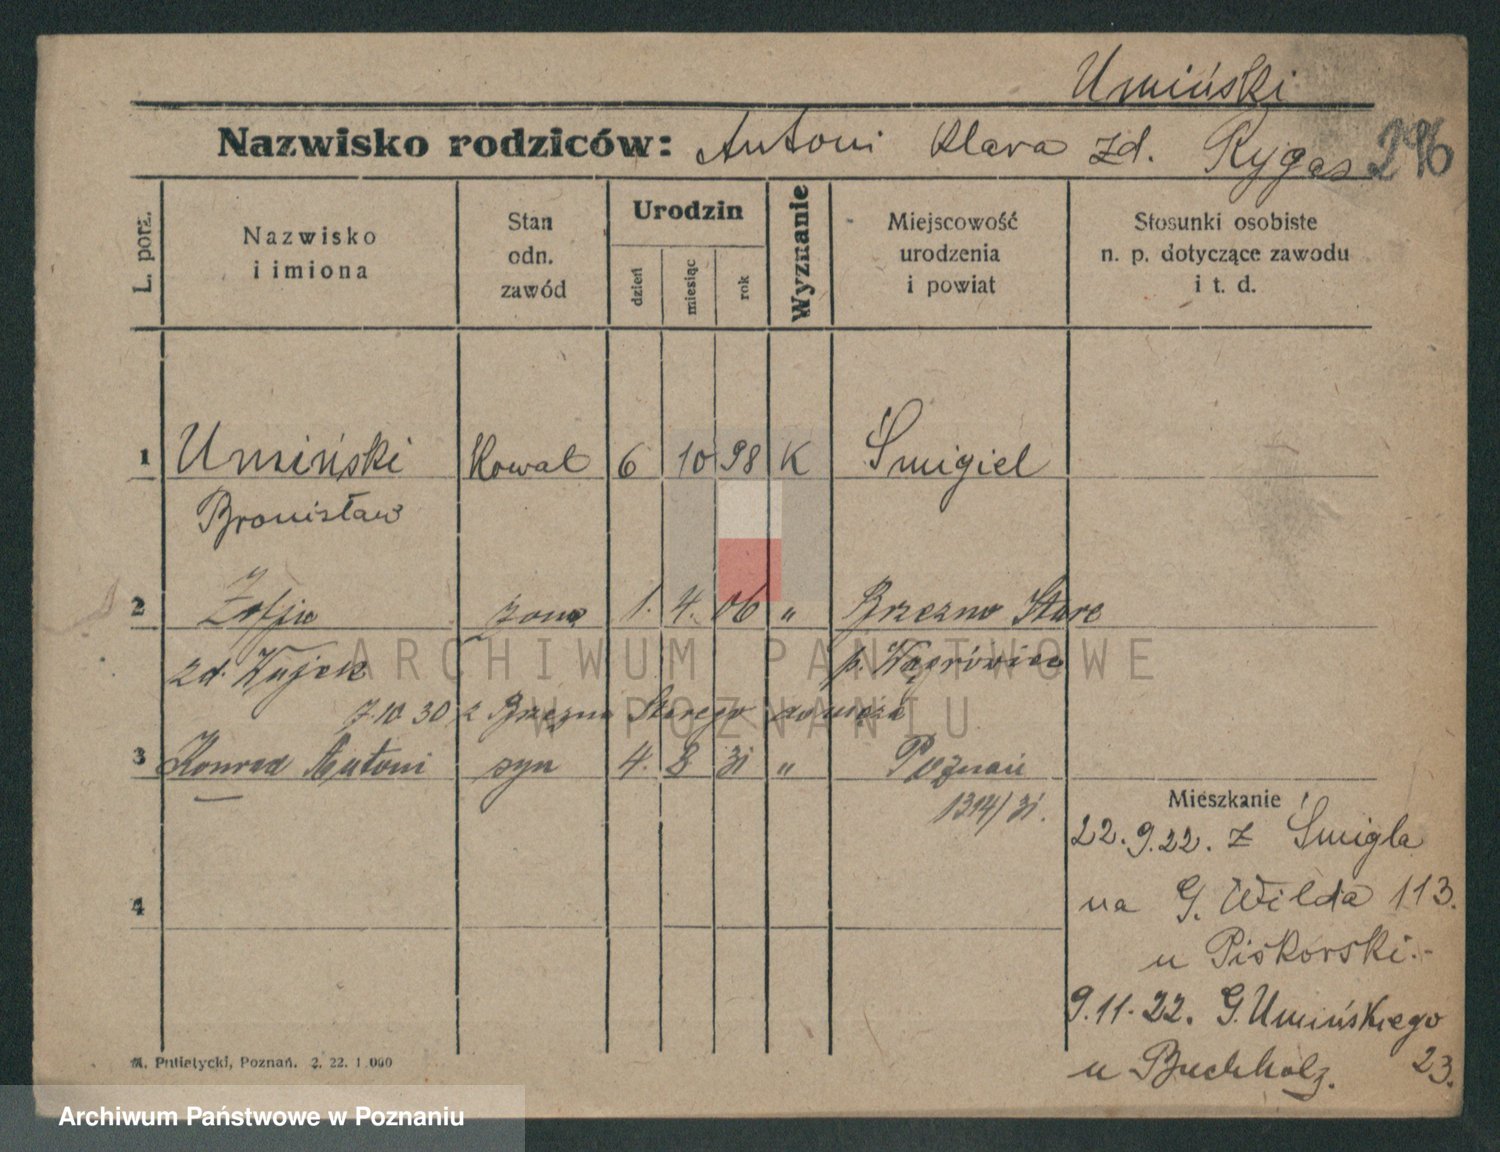 Umiński
Nazwisko rodziców: Antoni Klara zd. Rygas 296
L. porz.
Nazwisko
i imiona
Stan
odn.
zawód
Urodzin
dzień
miesiąc
rok
Wyznanie
Miejscowość
urodzenia
i powiat
Stosunki osobiste
n. p. dotyczące zawodu
i t. d.
1 Umiński Kowal 6 10 98 K Śmigiel
Bronisław
2 Zofja żona 1. 4. 06 " Brzezno Stare
zd. Kujek p. Wągrówiec
7.10 30 z Brzezna Starego
3 Konrad Antoni syn 4. 8 31 " Poznań
1314/31.
4
Mieszkanie
22.9.22. z Śmigla
na G. Wilda 113.
u Piskorski.-
9.11.22. G. Umińskiego
u Buchholz. 23.
M. Putiatycki, Poznań. 2. 22. 1.000
ARCHIWUM PAŃSTWOWE
W POZNANIU
Archiwum Państwowe w Poznaniu